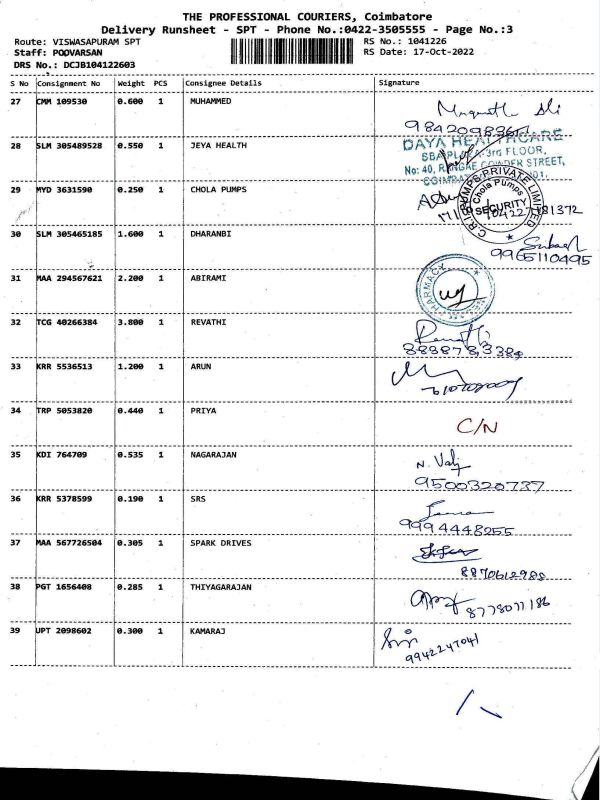 THE PROFESSIONAL COURIERS, Coimbatore
Delivery Runsheet - SPT - Phone No.:0422-3505555 - Page No.:3
Route: VISWASAPURAM SPT RS No.: 1041226
Staff: POOVARSAN RS Date: 17-Oct-2022
DRS No.: DCJB104122603
S No Consignment No Weight PCS Consignee Details Signature
27 CMM 109530 0.600 1 MUHAMMED
28 SLM 305489528 0.550 1 JEYA HEALTH
DAYA HEALTHCARE
3rd FLOOR,
No: 40, STREET,
29 MYD 3631590 0.250 1 CHOLA PUMPS
C.R.I PUMPS PRIVATE LIMITED
Chola Pumps
SECURITY
30 SLM 305465185 1.600 1 DHARANBI
9965110495
31 MAA 294567621 2.200 1 ABIRAMI
PHARMACY
32 TCG 40266384 3.800 1 REVATHI
33 KRR 5536513 1.200 1 ARUN
34 TRP 5053820 0.440 1 PRIYA C/N
35 KDI 764709 0.535 1 NAGARAJAN
9500320737
36 KRR 5378599 0.190 1 SRS
9994448255
37 MAA 567726504 0.305 1 SPARK DRIVES
8870612988
38 PGT 1656408 0.285 1 THIYAGARAJAN
8778077186
39 UPT 2098602 0.300 1 KAMARAJ
9942247041